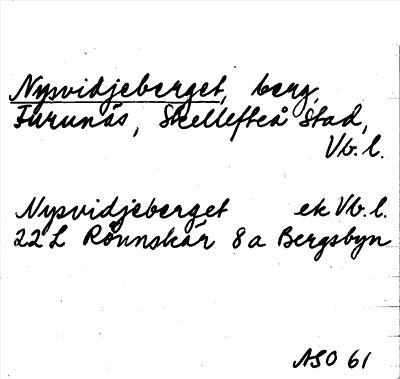 Nysvidjeberget, berg,
Furunäs, Skellefteå Stad,
Vb. l.
Nysvidjeberget ek Vb. l.
22 L Rönnskär 8 a Bergsbyn
ASO 61